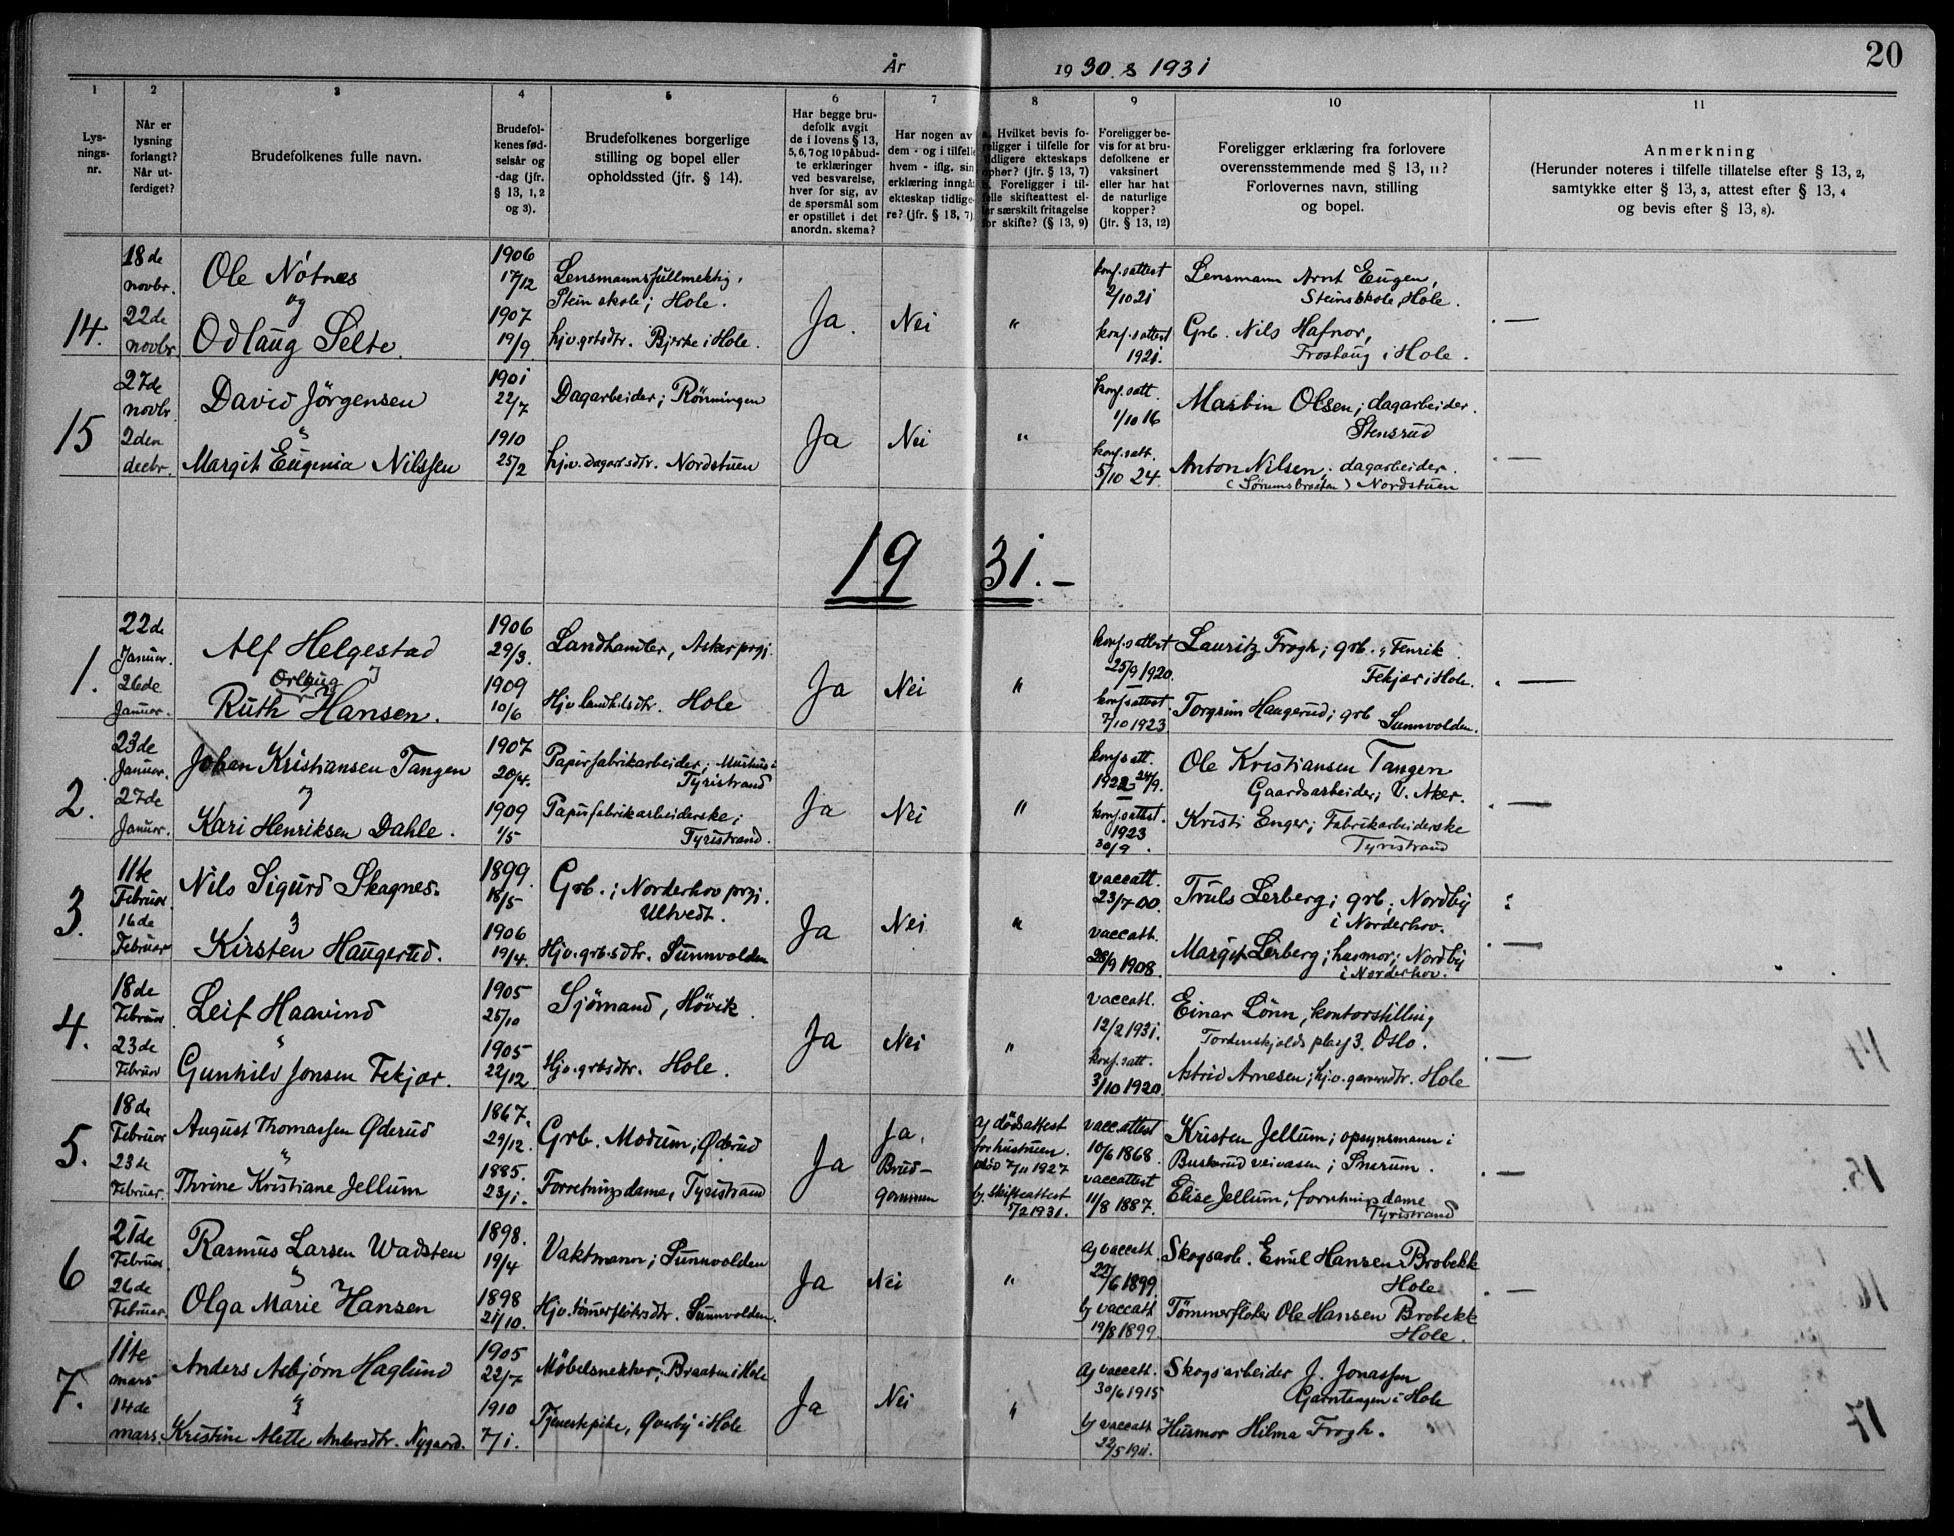 År 1930 & 1931
20
1
2
3
4
5
6
7
8
9
10
11
Lys-
nings-
nr.
Når er
lysning
forlangt?
Når ut-
ferdiget?
Brudefolkenes fulle navn.
Brudefol-
kenes fød-
selsår og
-dag (jfr.
§ 13, 1, 2
og 3).
Brudefolkenes borgerlige
stilling og bopel eller
opholdssted (jfr. § 14).
Har begge bru-
defolk avgit
de i lovens § 13,
5, 6, 7 og 10 påbud-
te erklæringer
ved besvarelse,
hver for sig, av
de spørsmål som
er opstillet i det
anordn. skema?
Har nogen av
dem - og i tilfelle
hvem - iflg. sin
erklæring inngått
ekteskap tidlige-
re? (jfr. § 13, 7).
a. Hvilket bevis fo-
religger i tilfelle for
tidligere ekteskaps
ophør? (jfr. § 13, 7)
b. Foreligger i til-
felle skifteattest el-
ler særskilt fritagelse
for skifte? (§ 13, 9)
Foreligger be-
vis for at bru-
defolkene er
vaksinert
eller har hat
de naturlige
kopper?
(jfr. § 13, 12)
Foreligger erklæring fra forlovere
overensstemmende med § 13, 11?
Forlovernes navn, stilling
og bopel.
Anmerkning
(Herunder noteres i tilfelle tillatelse efter § 13, 2,
samtykke efter § 13, 3, attest efter § 13, 4
og bevis efter § 13, 8).
14.
18de
novbr.
22de
novbr.
Ole Nötnes
og
Odlaug Selte.
1906
17/12
1907
19/9
Lensmannsfullmektig,
Stein skole; Hole.
hjv.grbsdtr. Bjerke i Hole.
Ja.
Nei
"
konf.sattest
2/10 21
konf.sattest
1921.
Lensmann Arnt Eugen,
Steinsskole, Hole.
Grb. Nils Hafnor,
Froshaug i Hole.
. —
15
27de
novbr
2den
decbr.
David Jörgensen
"
Margit Eugenia Nilssen
1901
22/7
1910
25/2
Dagarbeider; Rönningen
hjv. dagarb.sdtr. Nordstuen
Ja
Nei
"
konf.satt.
1/10 16
konf.satt.
5/10 24.
Martin Olsen; dagarbeider.
Stensrud
Anton Nilsen; dagarbeider.
(Sørumsbraaten) Nordstuen
. —
1931. —
1.
22de
Januar.
26de
Januar.
Alf Helgestad
Orlaug
Ruth Hansen.
1906
29/3.
1909
10/6
Landhandler, Asker prgj.
Hjv. landhlsdtr. Hole
Ja
Nei
"
konf.sattest
25/9 1920.
konf.sattest.
7/10 1923.
Lauritz Frogh; grb., Fenrik
Fekjær i Hole.
Torgrim Haugerud; grb Sunnvolden.
. —
2.
23de
Januar.
27de
Januar.
Johan Kristiansen Tangen
Kari Henriksen Dahle.
1907
20/4.
1909
1/5
Papirfabrikarbeider;
Tyristrand
Papirfabrikarbeiderske;
Tyristrand.
Ja
Nei
"
konf.satt.
1922 24/9.
konf.sattest.
1923
30/9.
Ole Kristiansen Tangen
Gaardsarbeider; V. Aker.
Kristi Enger; Fabrikarbeiderske
Tyristrand
. —
3.
11te
Februar.
16de
Februar
Nils Sigurd Skagnes.
Kirsten Haugerud.
1899.
18/5
1906
19/4.
Grb.; Norderhov prgj.
Ultvedt.
Hjv.grb.sdtr. Sunnvolden
Ja
Nei
"
vaccatt.
23/7 00.
vaccatt.
28/9 1908.
Truls Lerberg; grb; Nordby
i Norderhov.
Margit Lerberg; husmor; Nordby
i Norderhov.
. —
4.
18de
Februar.
23de
Februar
Leif Haavind
"
Gunhild Jonsen Fekjær.
1905
25/10
1905
22/12.
Sjömand, Hövik.
Hjv.grbsdtr. Hole.
Ja
Nei
"
vaccatt.
12/2 1931.
konf.satt.
3/10 1920.
Einar Lönn, kontorstilling
Tordenskjolds plass 3. Oslo.
Astrid Arnesen; hjv. Hole
. —
5.
18de
Februar
23de
Februar.
August Thomassen Øderud
"
Thrine Kristiane Jellum
1867.
29/12.
1885.
23/1.
Grb. Modum; Øderud
Forretningsdame, Tyristrand
Ja
Ja,
Brud-
gommen
a) dødsattest
for hustruen.
død 7/11 1927
b) Skifteattest
5/2 1931.
vacc.attest
10/6 1868.
vaccattest
11/8 1887.
Kristen Jellum; opsynsmann i
Buskerud veivæsen; Snarum.
Elise Jellum; forretningsdame
Tyristrand
. —
6
21de
Februar.
26de
Februar.
Rasmus Larsen Wadsten
"
Olga Marie Hansen
1898.
19/4
1898
21/10.
Vaktmann; Sunnvolden
Hjv. tömerfløtersdtr. Sunnvolden.
Ja
Nei
"
a) vaccatt.
22/6 1899.
b) vaccatt.
19/8 1899.
Skogsarb. Emil Hansen Brobekk
Hole
Tømmerfløter Ole Hansen Brobekk
Hole.
. —
7.
11te
mars
14de
mars.
Anders Asbjørn Haglund
"
Kristine Alette Andersdtr. Nygaard.
1905
22/7
1910
7/1.
Møbelsnekker; Braaten i Hole
Tjenestepike, Gverby i Hole
Ja
Nei
"
a) vaccatt.
30/6 1915
b) vaccatt.
22/5 1911.
Skogsarbeider J. Jonassen
Garntangen i Hole
Husmor Hilma Frogh.